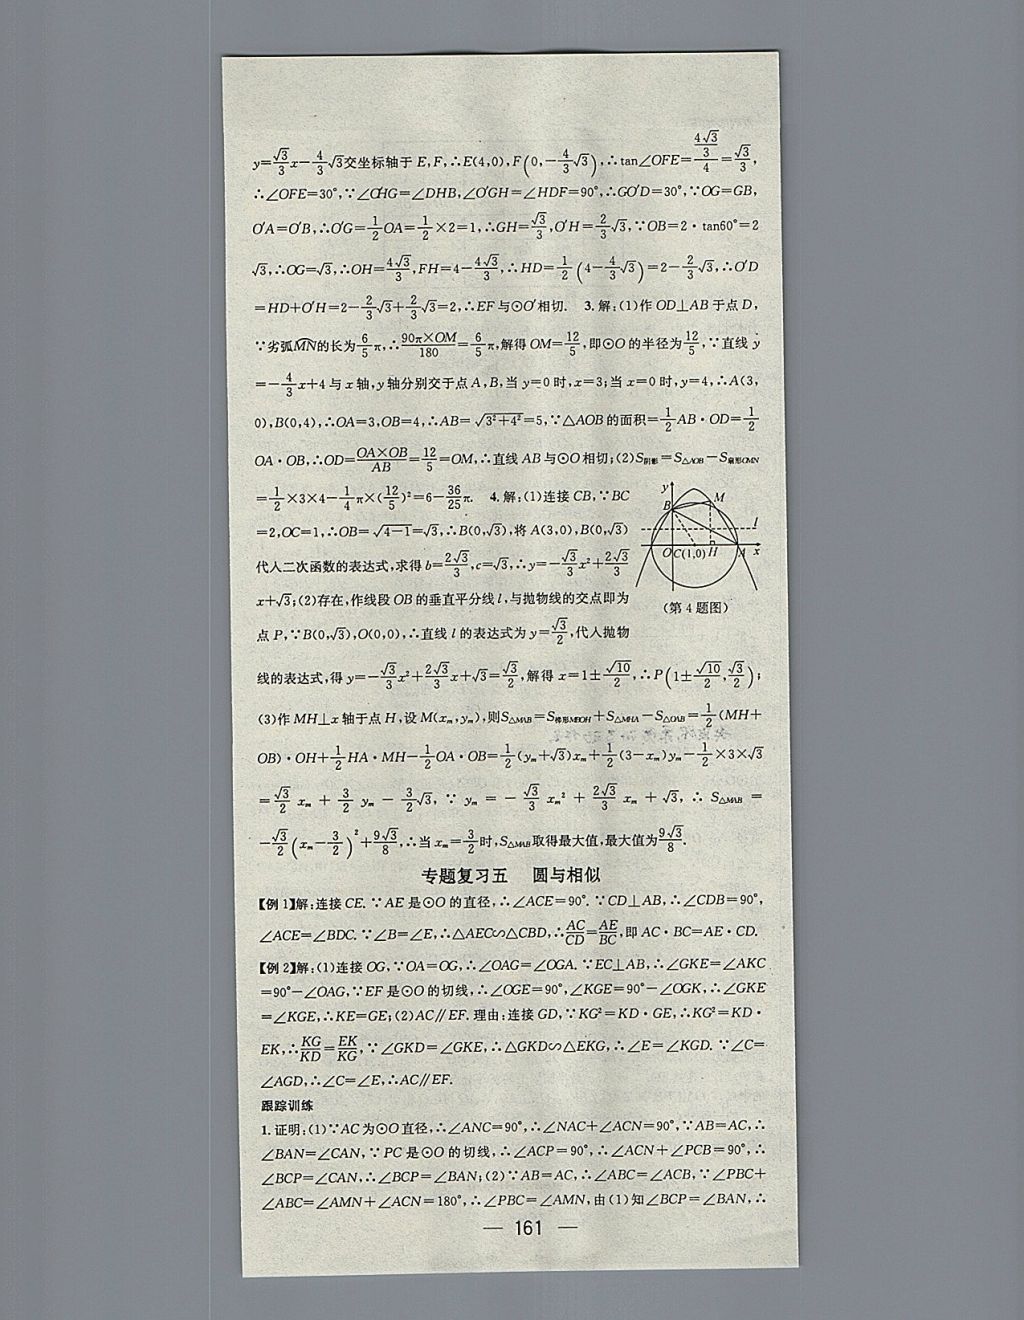 y=√3/3x-4/3√3交坐标轴于E,F,∴E(4,0),F(0,-4/3√3),∴tan∠OFE=(4√3/3)/4=√3/3,
∴∠OFE=30°,∵∠O′HG=∠DHB,∠O′GH=∠HDF=90°,∴GO′D=30°,∵OG=GB,
O′A=O′B,∴O′G=1/2OA=1/2×2=1,∴GH=√3/3,O′H=2/3√3,∵OB=2·tan60°=2
√3,∴OG=√3,∴OH=4√3/3,FH=4-4√3/3,∴HD=1/2(4-4/3√3)=2-2/3√3,∴O′D
=HD+O′H=2-2/3√3+2/3√3=2,∴EF与⊙O′相切. 3.解:(1)作OD⊥AB于点D,
∵劣弧MN的长为6/5π,∴90π×OM/180=6/5π,解得OM=12/5,即⊙O的半径为12/5,∵直线y
=-4/3x+4与x轴,y轴分别交于点A,B,当y=0时,x=3;当x=0时,y=4,∴A(3,
0),B(0,4),∴OA=3,OB=4,∴AB=√(3²+4²)=5,∵△AOB的面积=1/2AB·OD=1/2
OA·OB,∴OD=OA×OB/AB=12/5=OM,∴直线AB与⊙O相切;(2)S阴影=S△AOB-S扇形OMN
=1/2×3×4-1/4π×(12/5)²=6-36/25π. 4.解:(1)连接CB,∵BC
=2,OC=1,∴OB=√(4-1)=√3,∴B(0,√3),将A(3,0),B(0,√3)
代人二次函数的表达式,求得b=2√3/3,c=√3,∴y=-√3/3x²+2√3/3
x+√3;(2)存在,作线段OB的垂直平分线l,与抛物线的交点即为
点P,∵B(0,√3),O(0,0),∴直线l的表达式为y=√3/2,代人抛物
y
B
M
l
O
C(1,0)
H
A
x
(第4题图)
线的表达式,得y=-√3/3x²+2√3/3x+√3=√3/2,解得x=1±√10/2,∴P(1±√10/2,√3/2);
(3)作MH⊥x轴于点H,设M(xm,ym),则S△MAB=S梯形MBOH+S△MHA-S△OAB=1/2(MH+
OB)·OH+1/2HA·MH-1/2OA·OB=1/2(ym+√3)xm+1/2(3-xm)ym-1/2×3×√3
=√3/2 xm+3/2 ym-3/2√3,∵ym=-√3/3 xm²+2√3/3 xm+√3,∴S△MAB=
-√3/2(xm-3/2)²+9√3/8,∴当xm=3/2时,S△MAB取得最大值,最大值为9√3/8.
专题复习五 圆与相似
【例1】解:连接CE.∵AE是⊙O的直径,∴∠ACE=90°.∵CD⊥AB,∴∠CDB=90°,
∠ACE=∠BDC.∵∠B=∠E,∴△AEC∽△CBD,∴AC/CD=AE/BC,即AC·BC=AE·CD.
【例2】解:(1)连接OG,∵OA=OG,∴∠OAG=∠OGA.∵EC⊥AB,∴∠GKE=∠AKC
=90°-∠OAG,∵EF是⊙O的切线,∴∠OGE=90°,∠KGE=90°-∠OGK,∴∠GKE
=∠KGE,∴KE=GE;(2)AC∥EF.理由:连接GD,∵KG²=KD·GE,∴KG²=KD·
EK,∴KG/KD=EK/KG,∵∠GKD=∠GKE,∴△GKD∽△EKG,∴∠E=∠KGD.∵∠C=
∠AGD,∴∠C=∠E,∴AC∥EF.
跟踪训练
1.证明:(1)∵AC为⊙O直径,∴∠ANC=90°,∴∠NAC+∠ACN=90°,∵AB=AC,∴
∠BAN=∠CAN,∵PC是⊙O的切线,∴∠ACP=90°,∴∠ACN+∠PCB=90°,∴
∠BCP=∠CAN,∴∠BCP=∠BAN;(2)∵AB=AC,∴∠ABC=∠ACB,∵∠PBC+
∠ABC=∠AMN+∠ACN=180°,∴∠PBC=∠AMN,由(1)知∠BCP=∠BAN,∴
— 161 —